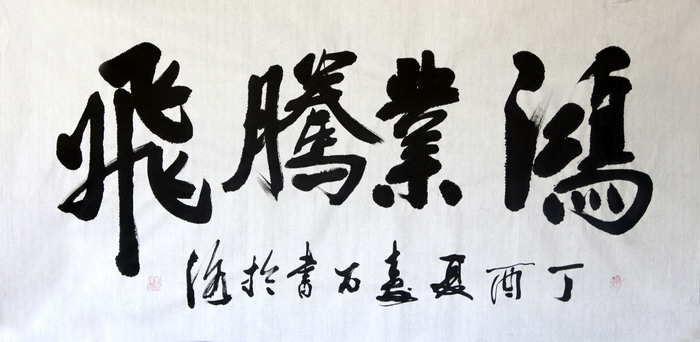 鴻業騰飛
丁酉夏志石書於海